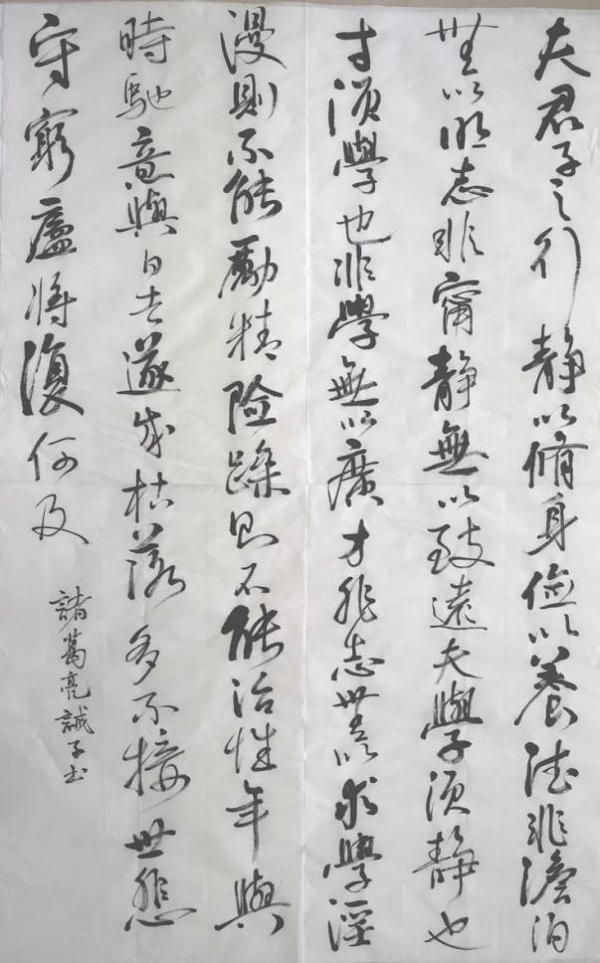 夫君子之行静以脩身儉以養德非澹泊
無以明志非甯静無以致遠夫學須静也
才須學也非學無以廣才非志無以求學淫
漫則不能勵精險躁則不能治性年與
時馳意與日去遂成枯落多不接世悲
守窮廬將復何及
諸葛亮誡子書